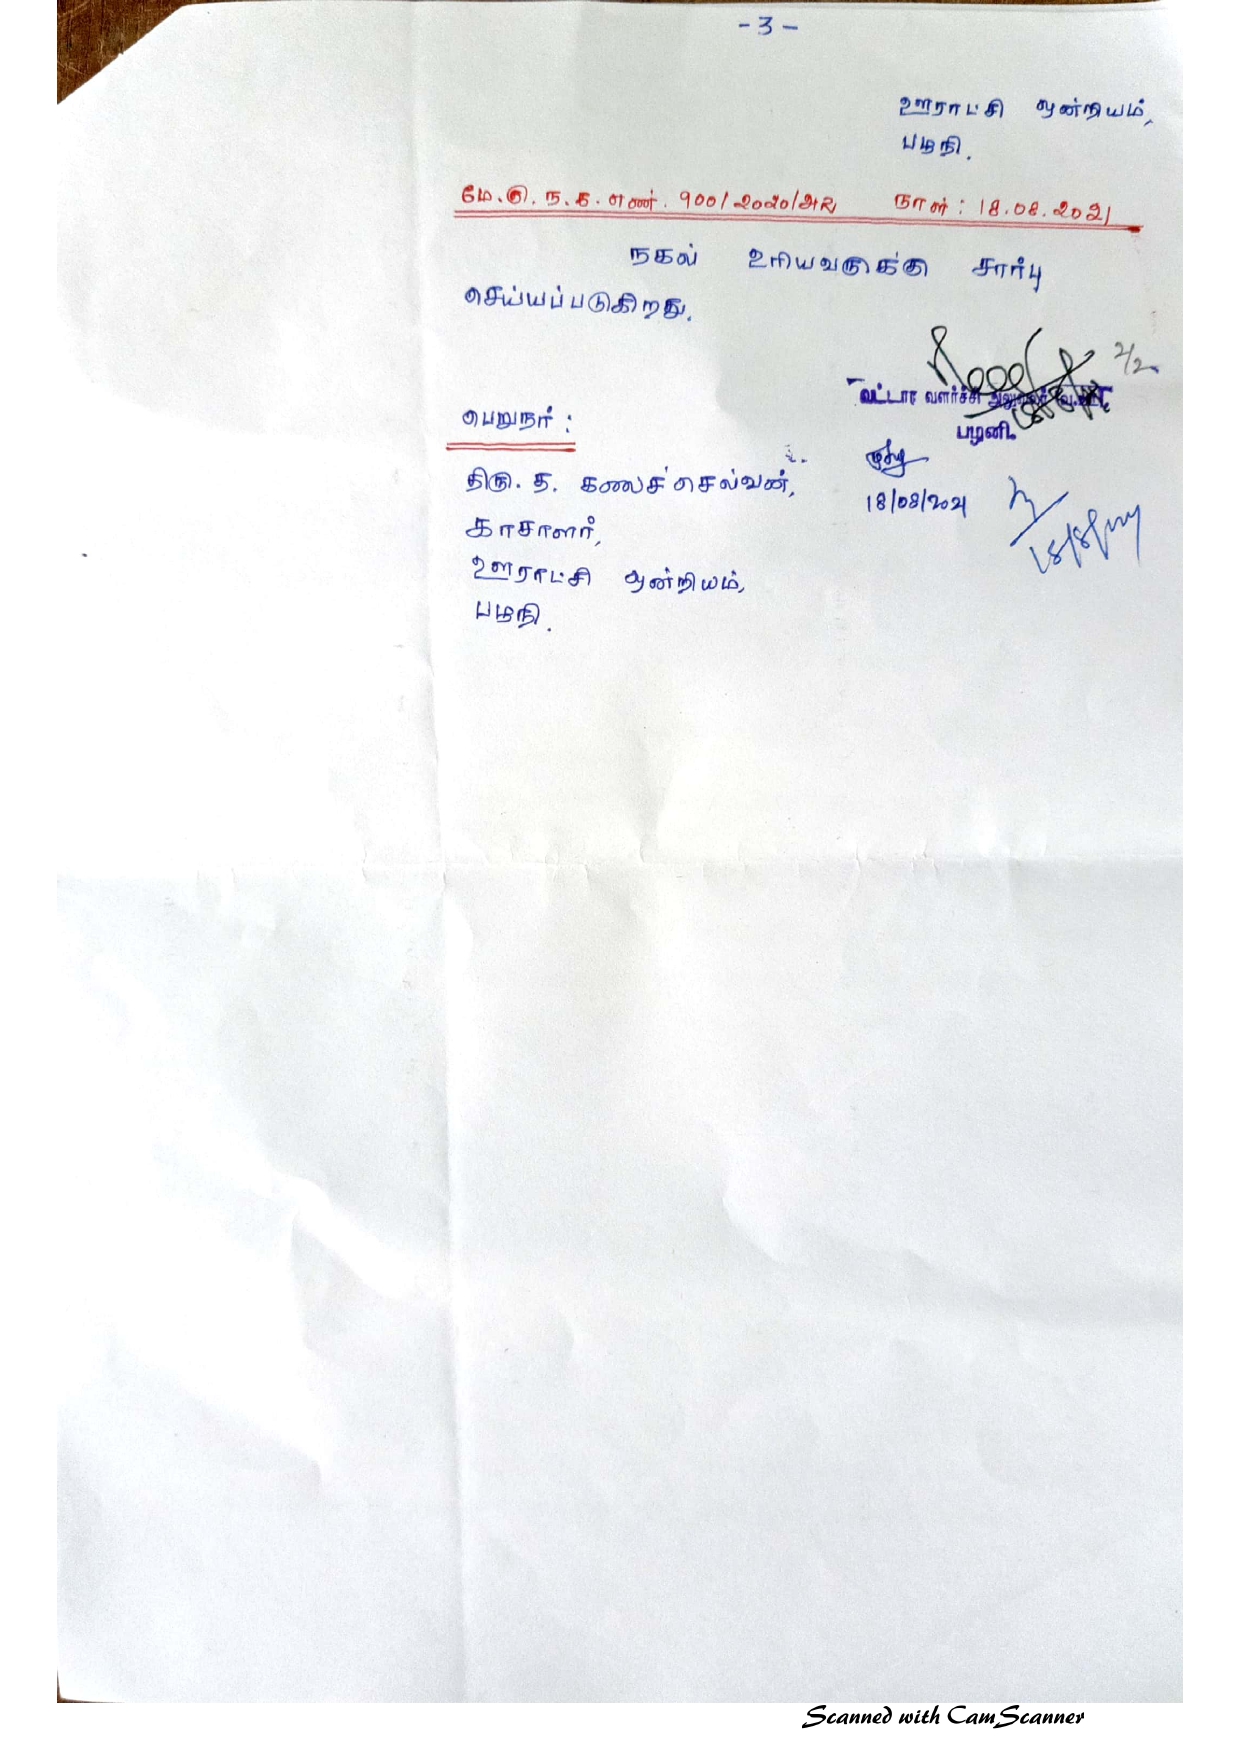 - 3 -
ஊராட்சி ஒன்றியம்,
பழநி.
மே.கு.ந.க.எண். 900/2020/அ2 நாள் : 18.08.2021
நகல் உரியவருக்கு சார்பு
செய்யப்படுகிறது.
வட்டார வளர்ச்சி அலுவலர்
பழனி.
பெறுநர் :
திரு. த. கலைச்செல்வன்,
18/08/2021
காசாளர்,
18/8/2021
ஊராட்சி ஒன்றியம்,
பழநி.
Scanned with CamScanner